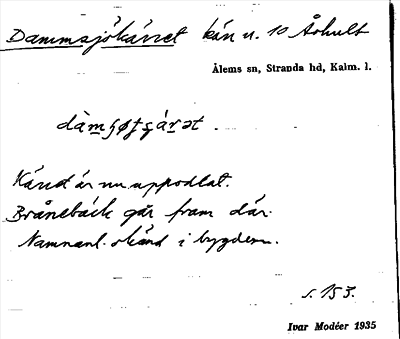 Dammsjökärret kän u. 10 Åshult
Ålems sn, Stranda hd, Kalm. l.
dàmʂøʃɕárət .
Käret är nu uppodlat.
Brånebäck går fram där.
Namnanl. okänd i bygden.
s. 153.
Ivar Modéer 1935